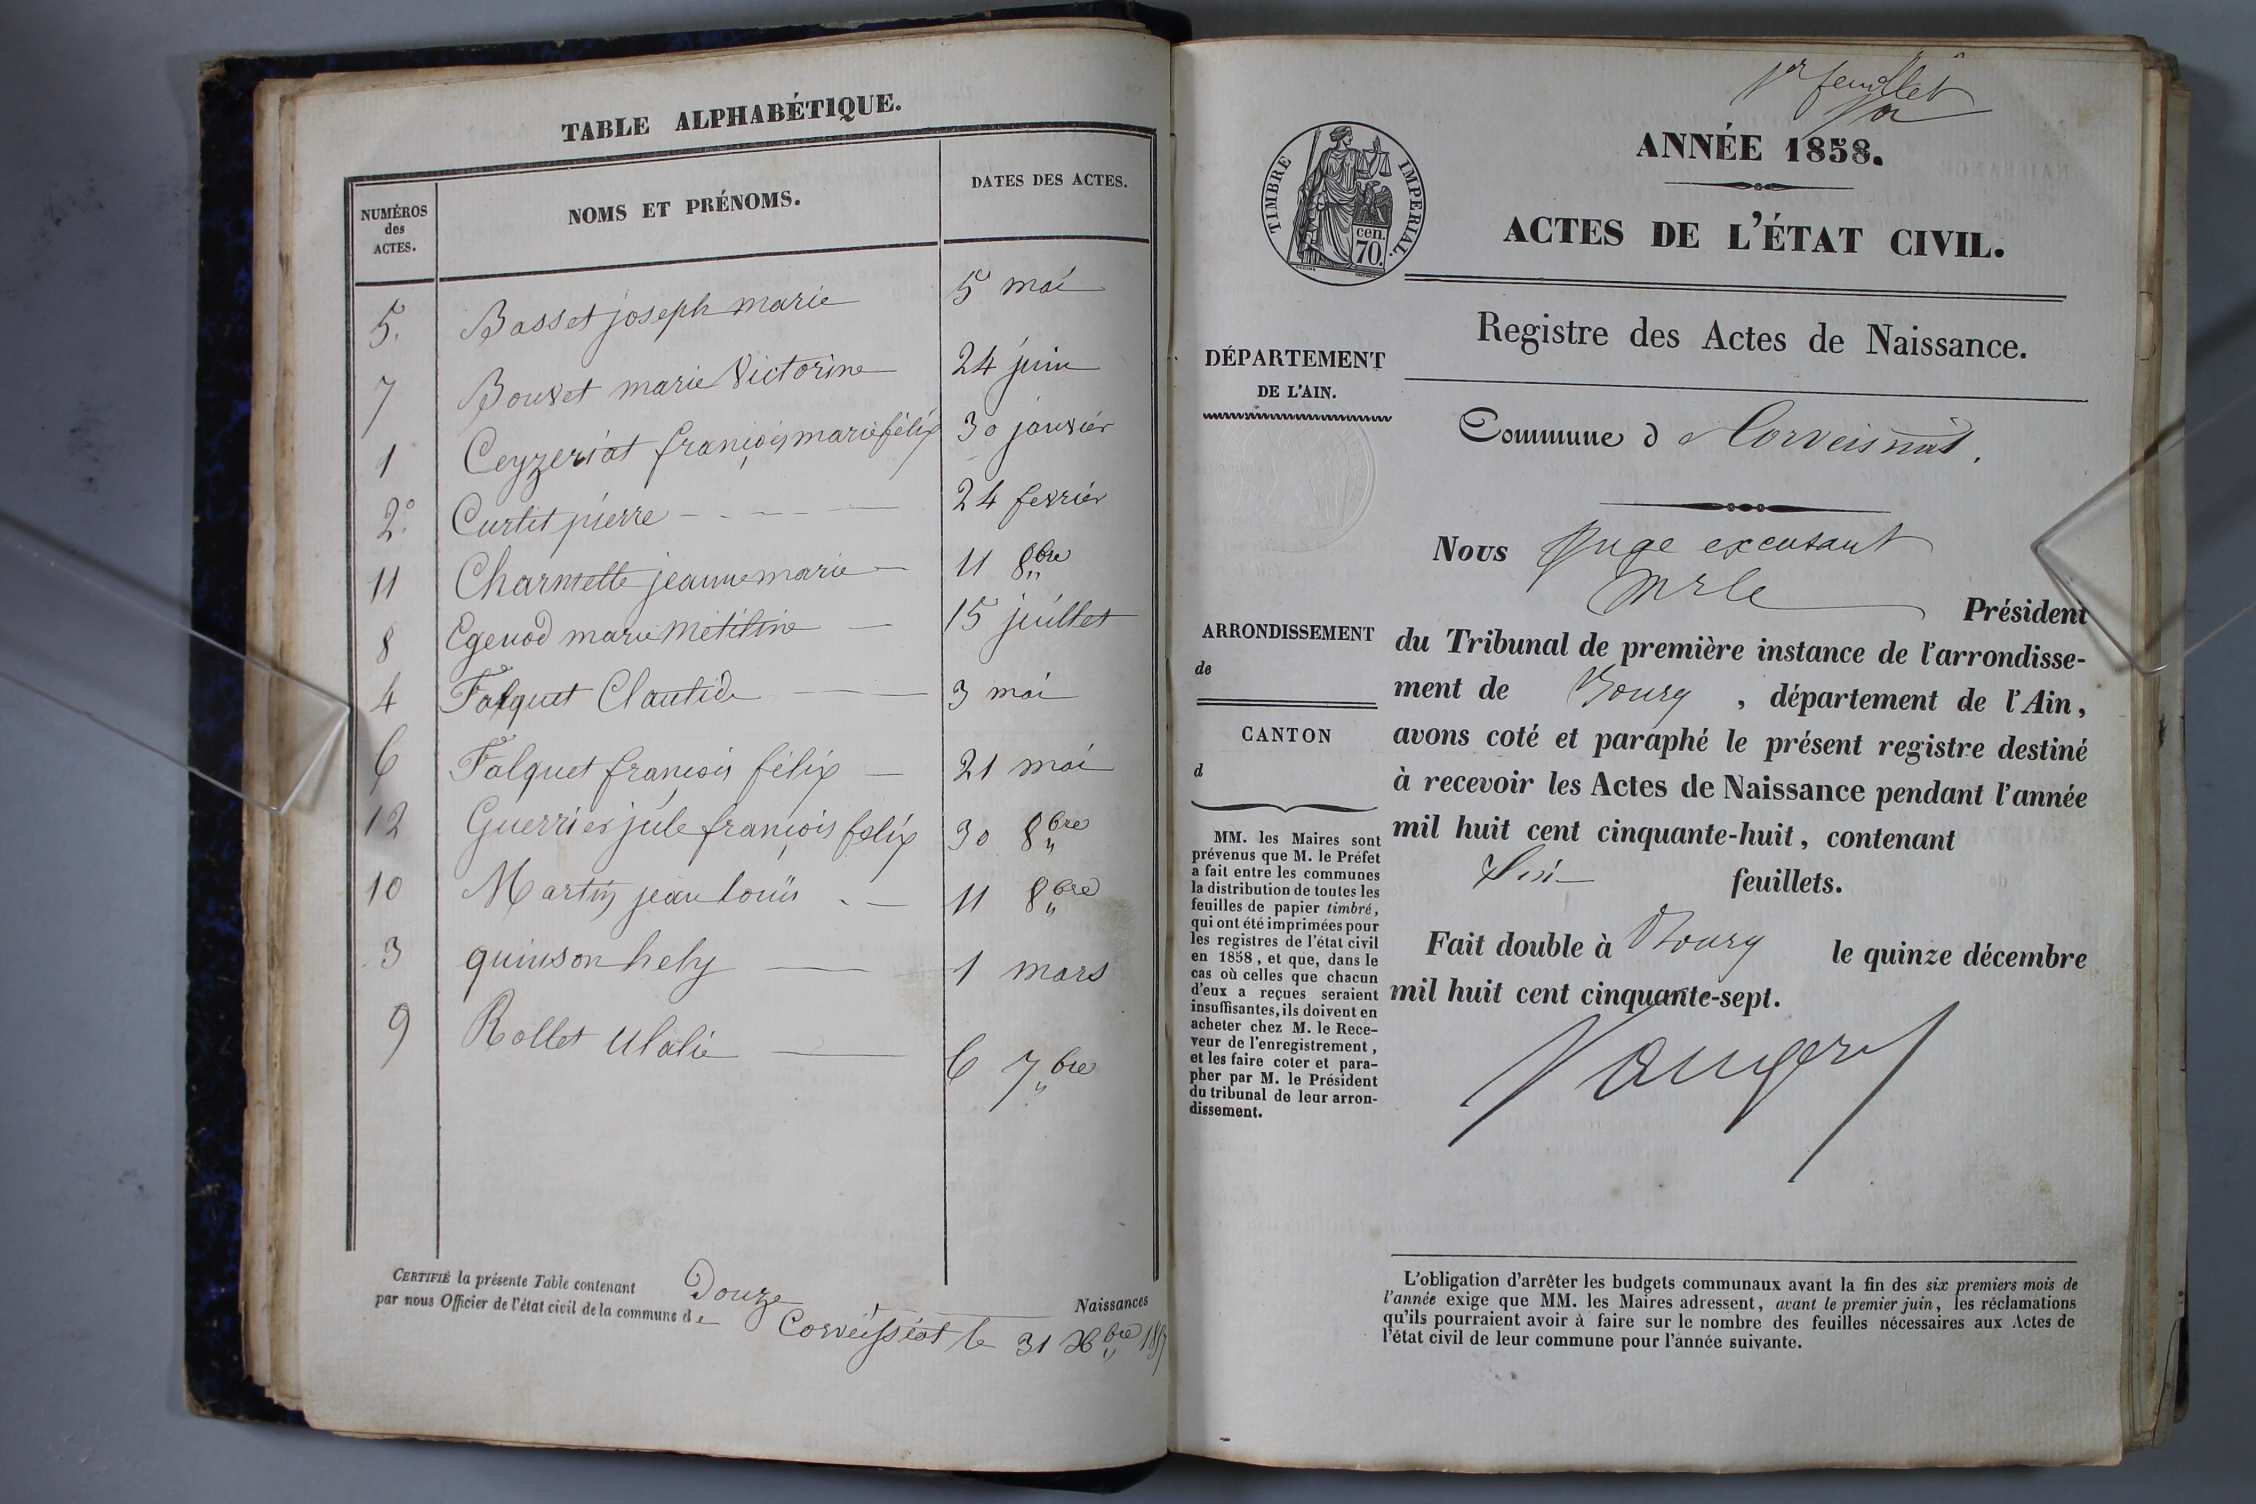 TABLE ALPHABÉTIQUE.
NUMÉROS
des
ACTES.
NOMS ET PRÉNOMS.
DATES DES ACTES.
5. Basset joseph marie 5 mai
7 Bouvet marie Victorine 24 juin
1 Ceyzeriat françois marie félix 30 janvier
2° Curtet pierre 24 fevrier
11 Charnette jeanne marie 11 8bre
8 Egenod marie 15 juillet
4 Falquet Claudide 3 mai
6 Falquet françois félix 21 mai
12 Guerrier jule françois felix 30 8bre
10 Martin jean louis 11 8bre
3 quinson hely 1 mars
9 Rollet Ulalie 6 7bre
CERTIFIÉ la présente Table contenant Douze Naissances
par nous Officier de l'état civil de la commune de Corveissiat le 31 Xbre 1857
1er feuillet
ANNÉE 1858.
TIMBRE IMPERIAL.
cen.
70.
ACTES DE L'ÉTAT CIVIL.
Registre des Actes de Naissance.
DÉPARTEMENT
DE L'AIN.
Commune d Corveissiat.
Nous Juge
Président
ARRONDISSEMENT
de
du Tribunal de première instance de l'arrondisse-
ment de Bourg, département de l'Ain,
CANTON
d
avons coté et paraphé le présent registre destiné
à recevoir les Actes de Naissance pendant l'année
mil huit cent cinquante-huit, contenant
Six feuillets.
Fait double à Bourg le quinze décembre
mil huit cent cinquante-sept.
MM. les Maires sont
prévenus que M. le Préfet
a fait entre les communes
la distribution de toutes les
feuilles de papier timbré,
qui ont été imprimées pour
les registres de l'état civil
en 1858, et que, dans le
cas où celles que chacun
d'eux a reçues seraient
insuffisantes, ils doivent en
acheter chez M. le Rece-
veur de l'enregistrement,
et les faire coter et para-
pher par M. le Président
du tribunal de leur arron-
dissement.
L'obligation d'arrêter les budgets communaux avant la fin des six premiers mois de
l'année exige que MM. les Maires adressent, avant le premier juin, les réclamations
qu'ils pourraient avoir à faire sur le nombre des feuilles nécessaires aux Actes de
l'état civil de leur commune pour l'année suivante.